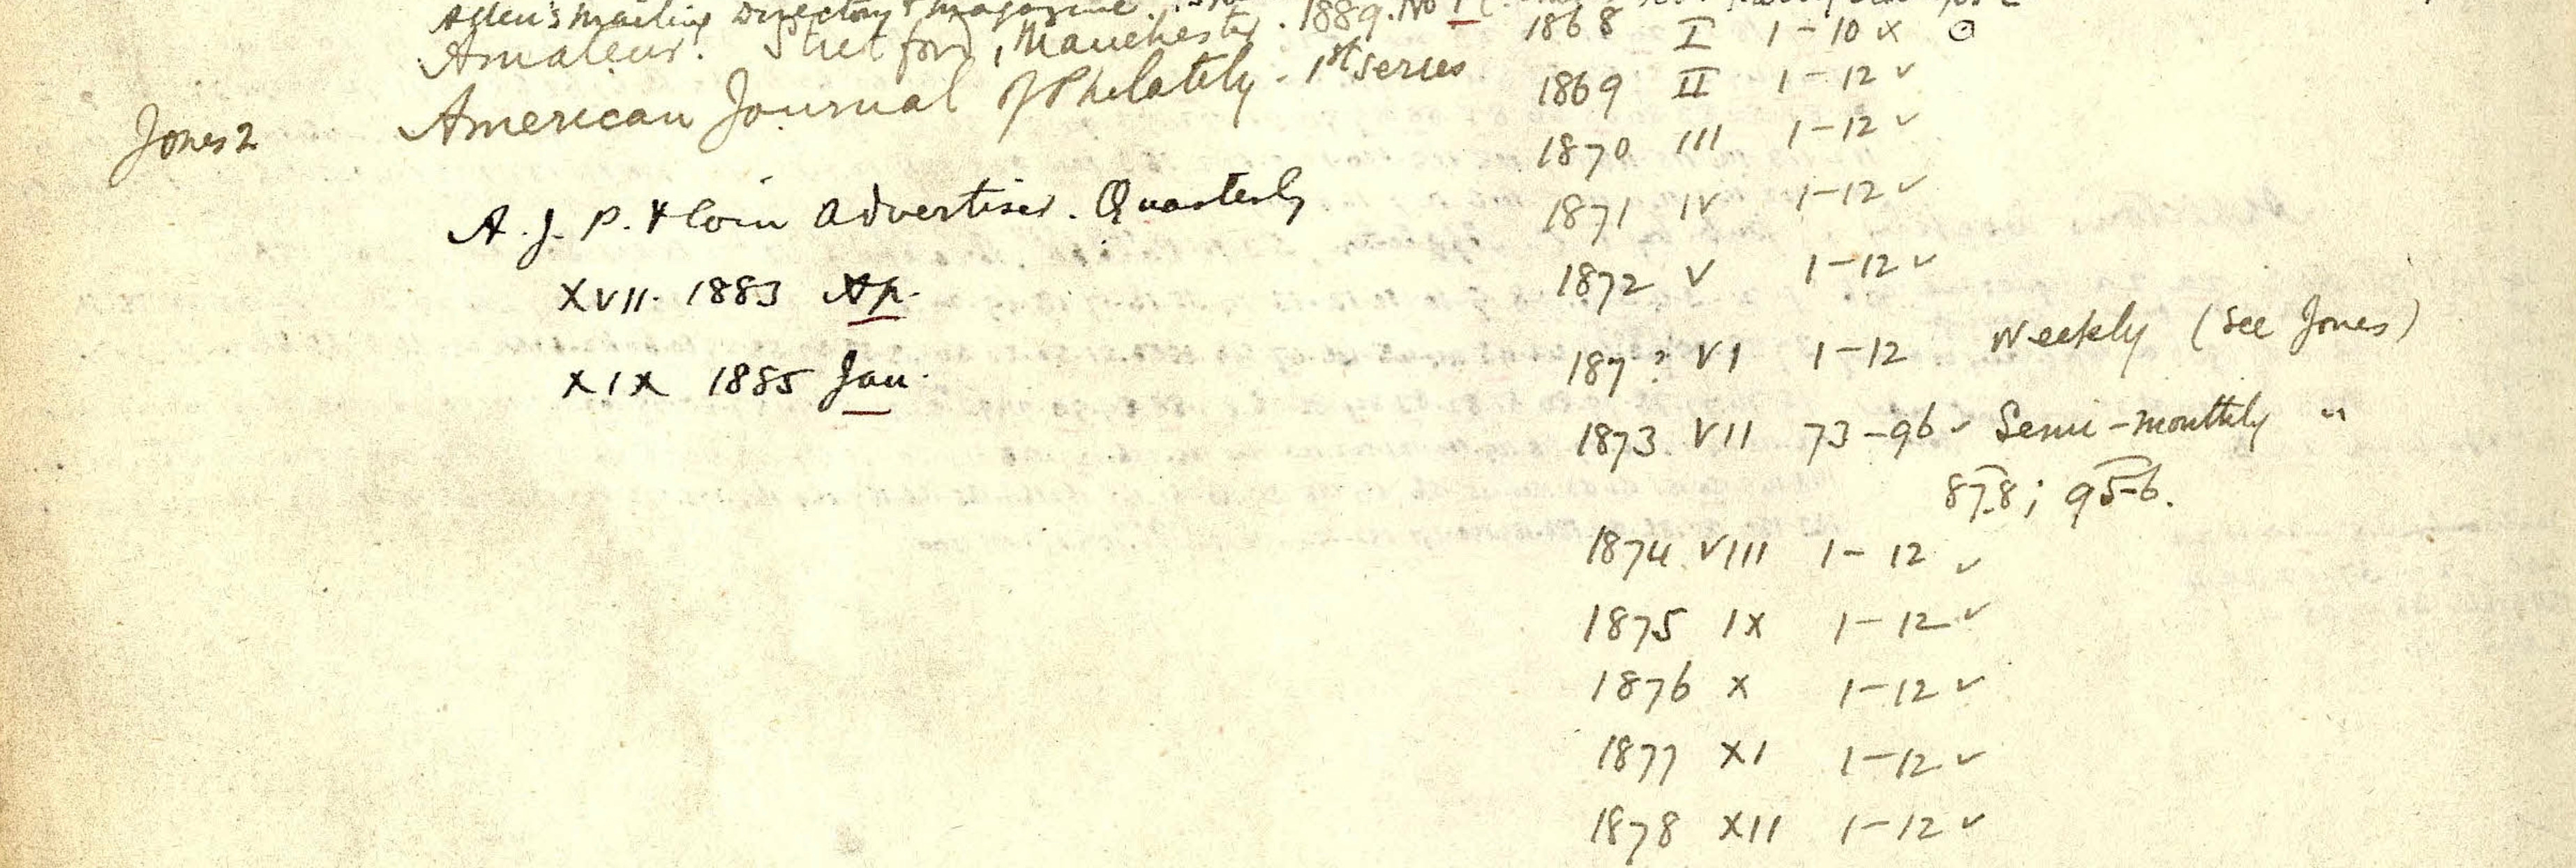 Mailing Directory & Magazine. 1889. No 1
Amateur. Stretford, Manchester. 1868 I 1-10 x ⊙
American Journal of Philately - 1st series 1869 II 1-12 ✓
Jones 2
1870 III 1-12 ✓
A. J. P. & Coin Advertiser. Quarterly 1871 IV 1-12 ✓
XVII. 1883 Ap. 1872 V 1-12 ✓
XIX 1885 Jan. 187? VI 1-12 Weekly (See Jones)
1873 VII 73-96 ✓ Semi-monthly "
87-8; 95-6.
1874 VIII 1-12 ✓
1875 IX 1-12 ✓
1876 X 1-12 ✓
1877 XI 1-12 ✓
1878 XII 1-12 ✓